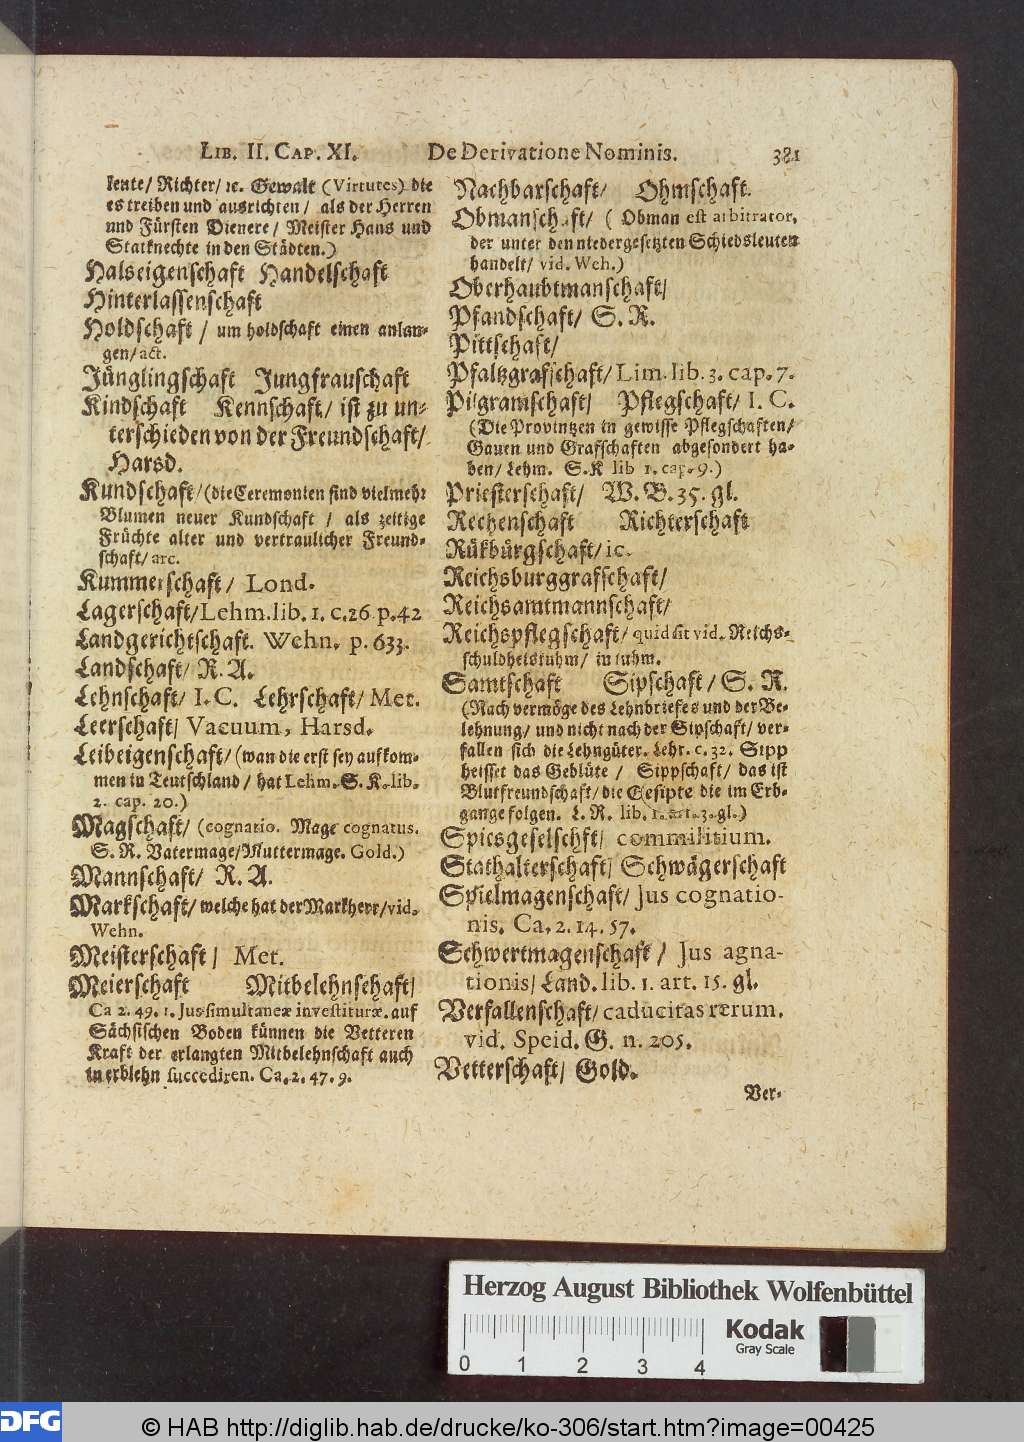 LIB. II. CAP. XI. De Derivatione Nominis. 381
leute/ Richter/ ꝛc. Gewalt (Virtutes) die
es treiben und ausrichten / als der Herren
und Fürsten Dienere/ Meister Hans und
Statknechte in den Städten.)
Halseigenschaft Handelschaft
Hinterlassenschaft
Holdschaft / um holdschaft einen anlan-
gen/ act.
Jünglingschaft Jungfrauschaft
Kindschaft Kennschaft/ ist zu un-
terschieden von der Freundschaft/
Harsd.
Kundschaft/ (die Ceremonien sind vielmehr
Blumen neuer Kundschaft / als zeitige
Früchte alter und vertraulicher Freund-
schaft/ arc.
Kummerschaft/ Lond.
Lagerschaft/ Lehm. lib. 1. c. 26 p. 42
Landgerichtschaft. Wehn. p. 633.
Landschaft/ R. A.
Lehnschaft/ I. C. Lehrschaft/ Met.
Leerschaft/ Vacuum, Harsd.
Leibeigenschaft/ (wan die erst sey aufkom-
men in Teutschland / hat Lehm. S. K. lib.
2. cap. 20.)
Magschaft/ (cognatio. Mage cognatus.
S. R. Vatermage/ Muttermage. Gold.)
Mannschaft/ R. A.
Markschaft/ welche hat der Markherr/ vid.
Wehn.
Meisterschaft/ Met.
Meierschaft Mitbelehnschaft/
Ca 2. 49. 1. Jus simultaneæ investituræ. auf
Sächsischen Boden künnen die Vetteren
Kraft der erlangten Mitbelehnschaft auch
in erblehn succediren. Ca. 2. 47. 9.
Nachbarschaft/ Ohmschaft.
Obmanschaft/ ( Obman est arbitrator,
der unter den niedergesetzten Schiedsleuten
handelt/ vid. Weh.)
Oberhaubtmanschaft/
Pfandschaft/ S. R.
Pittschaft/
Pfaltzgrafschaft/ Lim. lib. 3. cap. 7.
Pilgramschaft/ Pflegschaft/ I. C.
(Die Provintzen in gewisse Pflegschaften/
Gauen und Grafschaften abgesondert ha-
ben/ Lehm. S. K lib 1. cap. 9.)
Priesterschaft/ W. B. 35. gl.
Rechenschaft Richterschaft
Rükbürgschaft/ ic.
Reichsburggrafschaft/
Reichsamtmannschaft/
Reichspflegschaft/ quid sit vid. Reichs-
schuldheistuhm/ in tuhm.
Samtschaft Sipschaft / S. R.
(Nach vermöge des Lehnbriefes und der Be-
lehnung/ und nicht nach der Sipschaft/ ver-
fallen sich die Lehngüter. Lehr. c. 32. Sipp
heisset das Geblüte / Sippschaft/ das ist
Blutfreundschaft/ die Gesipte die im Erb-
gange folgen. L. R. lib. 1. art. 3. gl.)
Spiesgeselschft/ commilitium.
Stathalterschaft/ Schwägerschaft
Spielmagenschaft/ Jus cognatio-
nis. Ca. 2. 14. 57.
Schwertmagenschaft / Jus agna-
tionis/ Land. lib. 1. art. 15. gl.
Verfallenschaft/ caducitas rerum.
vid. Speid. G. n. 205.
Vetterschaft/ Gold.
Ver-
Herzog August Bibliothek Wolfenbüttel
Kodak
Gray Scale
0 1 2 3 4
DFG
© HAB http://diglib.hab.de/drucke/ko-306/start.htm?image=00425